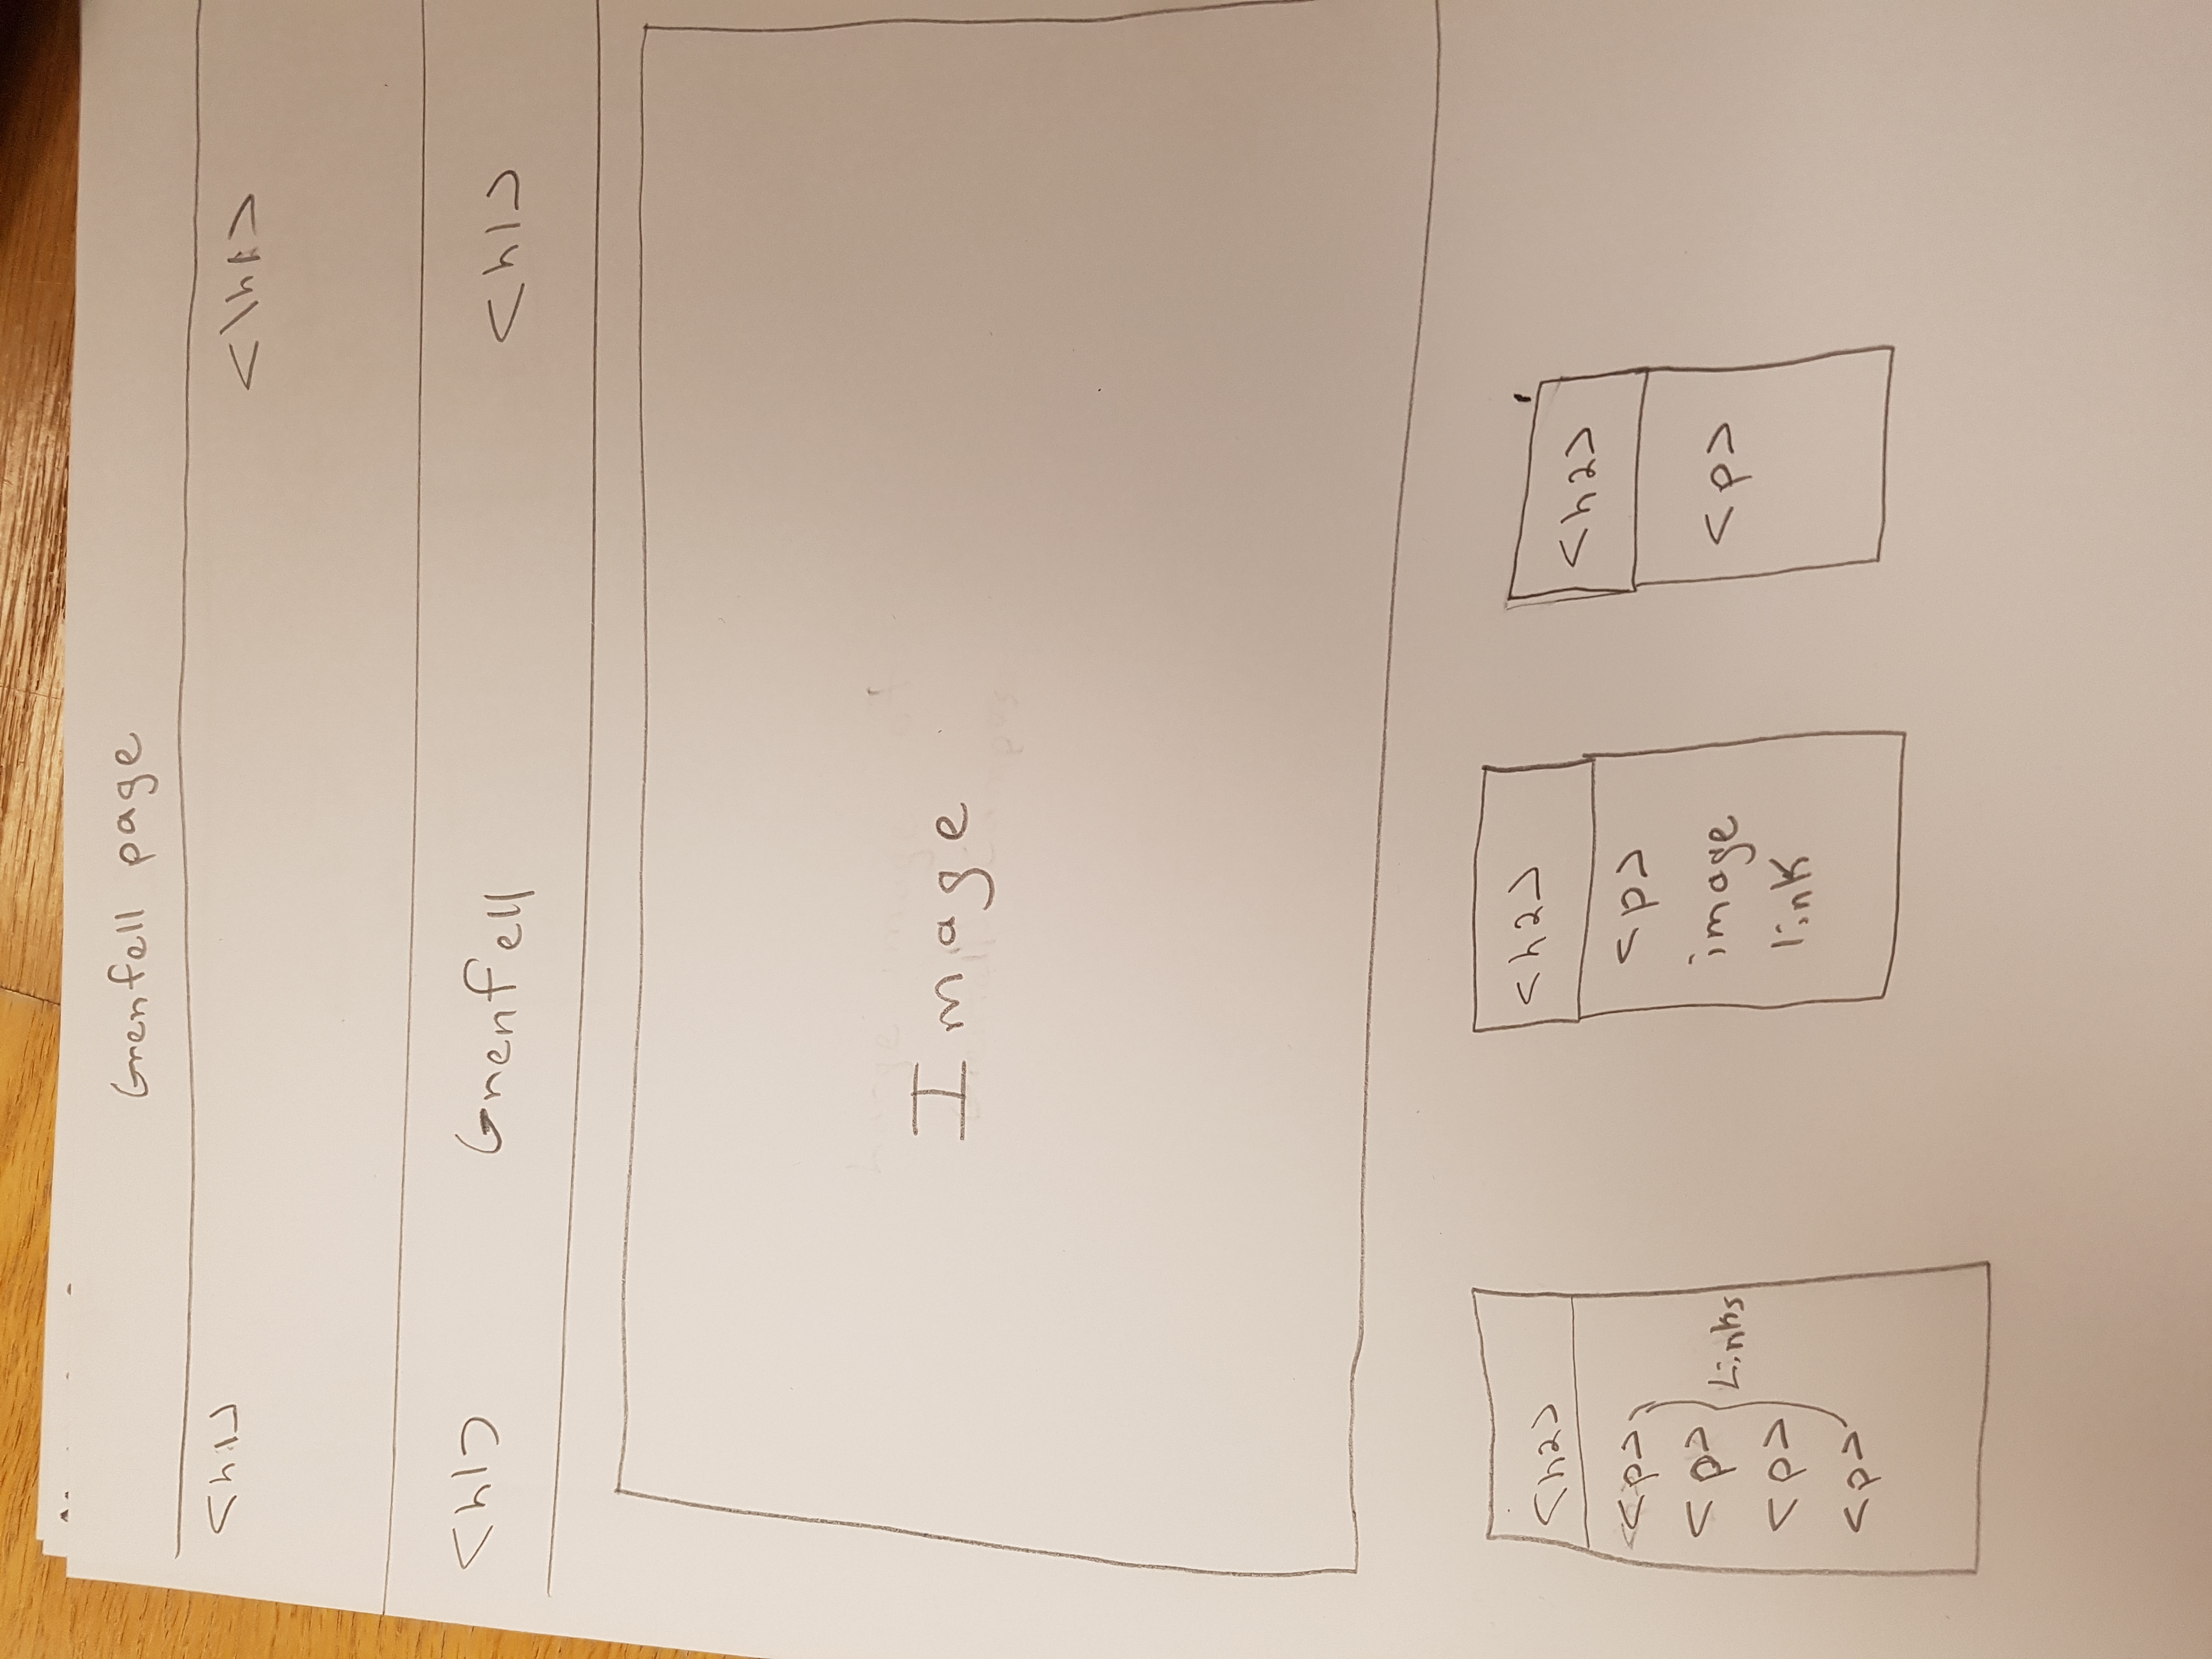 Grenfell page
<h1> <\h1>
<h1> Grenfell <h1>
Image
<h2>
<p>
<p>
<p>
<p>
Links
<h2>
<p>
image
link
<h2>
<p>